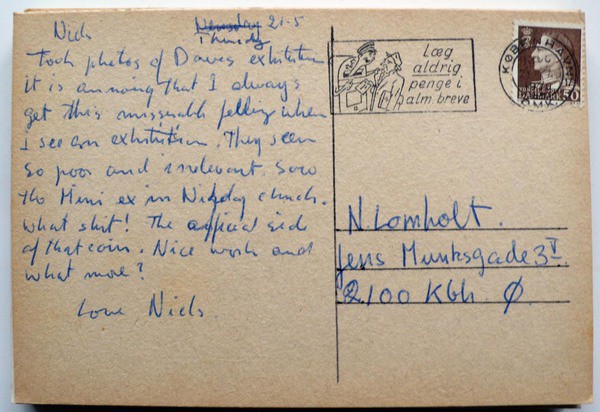 Nick
21-5
Took photos of Daves exhibition
it is annoing that I always
get this misserable felling when
I see an exhibition. They seem
so poor and irrelevant. Saw
the Mini ex in church.
what shit! The official side
of that coin. Nice work and
what more?
Love Niels.
Læg
aldrig
penge i
alm. breve
KØBENHAVN
50
N. Lomholt.
Jens Munksgade 3V
2100 Kbh. Ø.